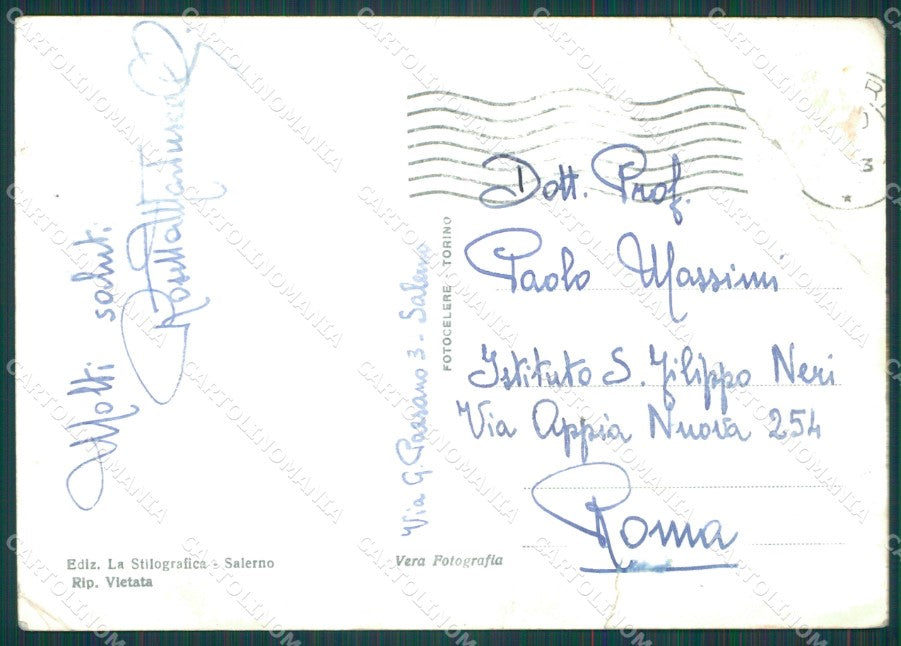 Molti saluti.
Via G. Passano 3 - Salerno
FOTOCELERE - TORINO
Dott. Prof.
Paolo Massimi
Istituto S. Filippo Neri
Via Appia Nuova 254
Roma
Ediz. La Stilografica - Salerno
Rip. Vietata
Vera Fotografia
CARTOLINOMANIA